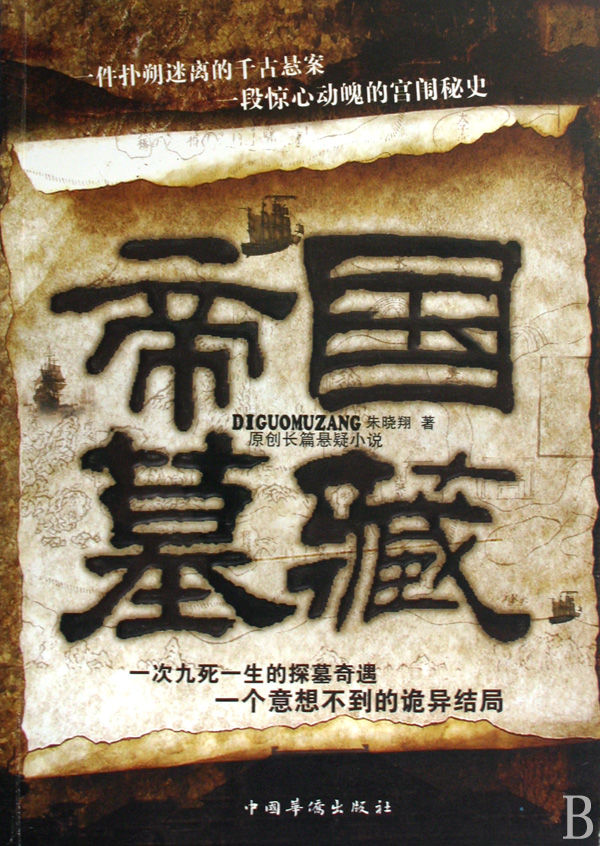 一件扑朔迷离的千古悬案
一段惊心动魄的宫闱秘史
帝国
DIGUOMUZANG 朱晓翔 著
原创长篇悬疑小说
墓藏
一次九死一生的探墓奇遇
一个意想不到的诡异结局
中国华侨出版社
B.